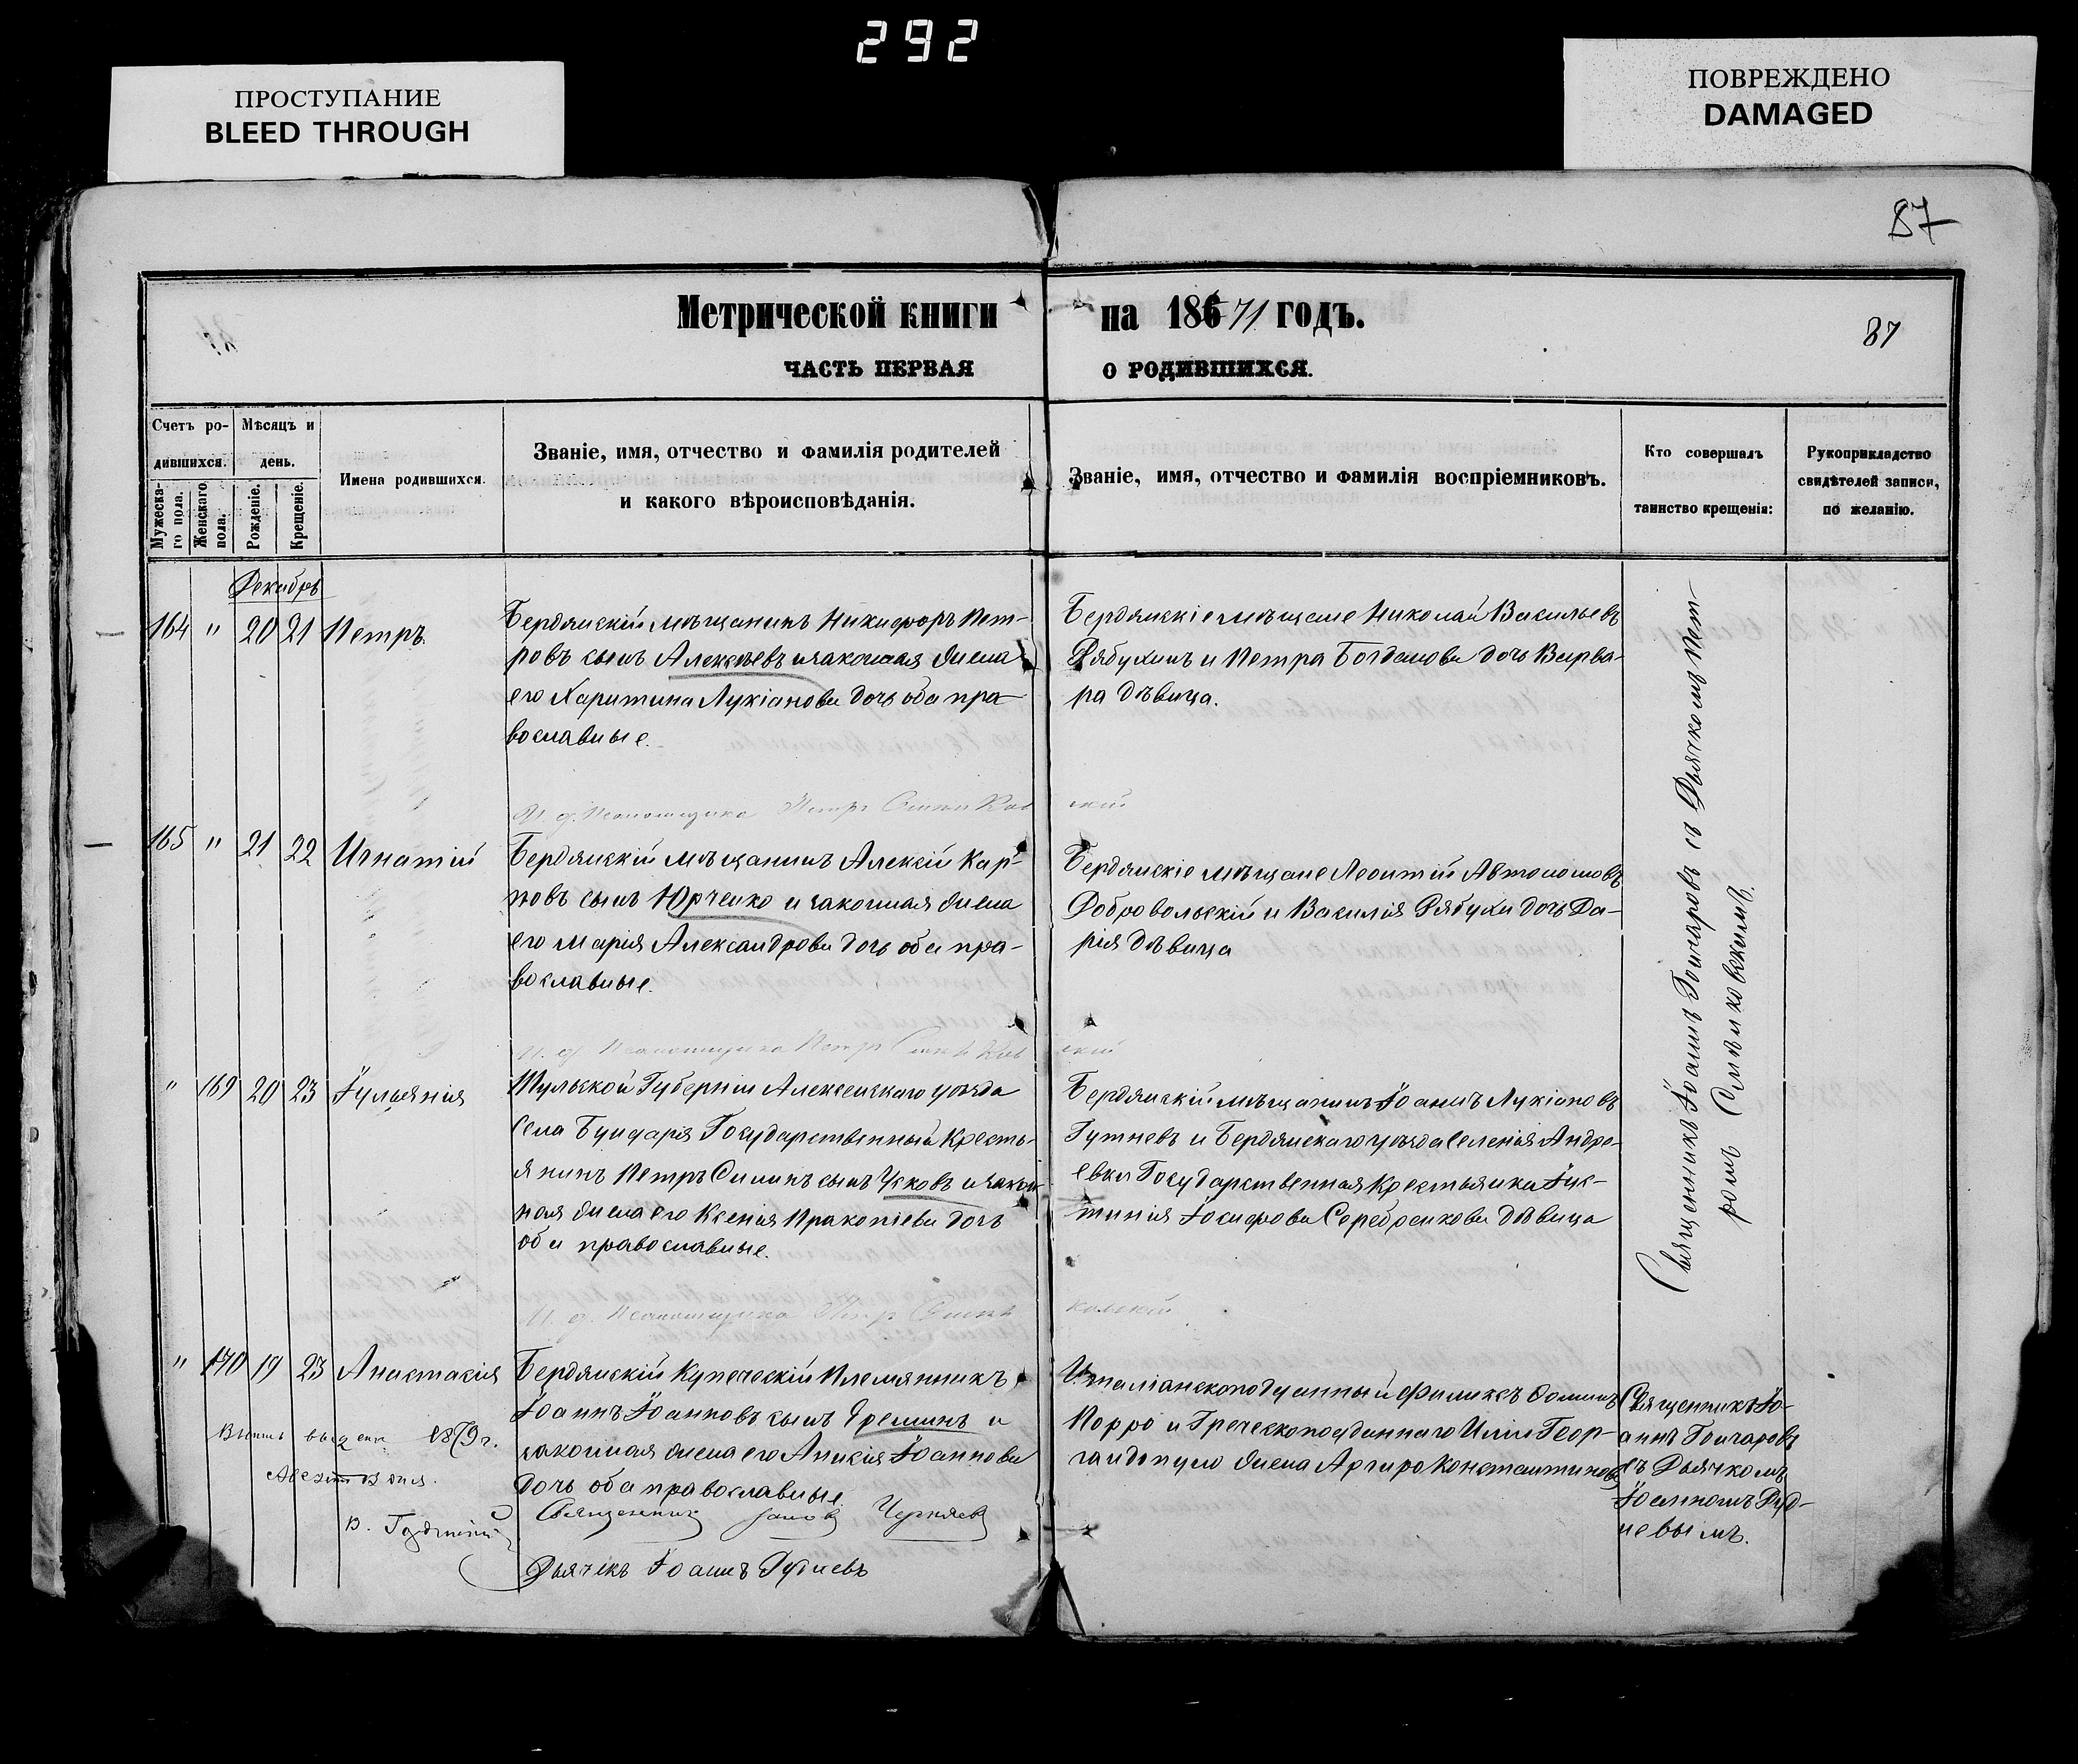 292
ПРОСТУПАНИЕ
BLEED THROUGH
ПОВРЕЖДЕНО
DAMAGED
87
Метрической книги на 18671 годъ.
87
ЧАСТЬ ПЕРВАЯ О РОДИВШИХСЯ.
Счетъ ро-
дившихся.
Мужеска-
го пола.
Женскаго
пола.
Мѣсяцъ и
день.
Рожденіе.
Крещеніе.
Имена родившихся.
Званіе, имя, отчество и фамилія родителей
и какого вѣроисповѣданія.
Званіе, имя, отчество и фамилія воспріемниковъ.
Кто совершалъ
таинство крещенія:
Рукоприкладство
свидѣтелей записи,
по желанію.
Декабрь
164 " 20 21 Петръ
Бердянскій мѣщанинъ Никифоръ Пет-
ровъ сынъ Алексѣевъ и законная жена
его Харитина Лукіанова дочь оба пра-
вославные.
Бердянскіе мѣщане Николай Васильевъ
Рябухинъ и Петра Богданова дочь Варва-
ра дѣвица.
И. д. Псаломщика Петръ
165 " 21 22 Игнатій
Бердянскій мѣщанинъ Алексій Кар-
повъ сынъ Юрченко и законная жена
его Марія Александрова дочь оба пра-
вославные.
Бердянскіе мѣщане Леонтій Автономовъ
Добровольскій и Василія Рябухи дочь Да-
рія дѣвица
И. д. Псаломщика Петръ
" 169 20 23 Іульянія
Тульской Губерніи Алексинскаго уѣзда
Села Государственный Кресть-
янинъ Петръ Силинъ сынъ Усковъ и закон-
ная жена его Ксенія Пракопіева дочь
оба православные.
Бердянскій мѣщанинъ Іоаннъ Лукіановъ
Гутневъ и Бердянскаго уѣзда Селенія Андре-
евки Государственная Крестьянка Іус-
тинія Іосифова Серебрякова дѣвица
И. д. Псаломщика Петръ
Священникъ Іоаннъ Гончаровъ съ Дьячкомъ Пет-
ромъ
" 170 19 23 Анастасія
Бердянскій Купеческій Племянникъ
Іоаннъ Іоанновъ сынъ Еремин и
законная жена его Анисія Іоаннова
дочь оба православные.
Италіанскоподданный Филиксъ Фоминъ
Порро и Греческоподданнаго Иліи Геор-
гандопуло жена Аргиро Константинова
Священникъ Іо-
аннъ Гончаровъ
съ Дьячкомъ
Іоанномъ Руд-
невымъ.
1879 г.
Священник Черняев
Дьячекъ Іоаннъ Рудневъ